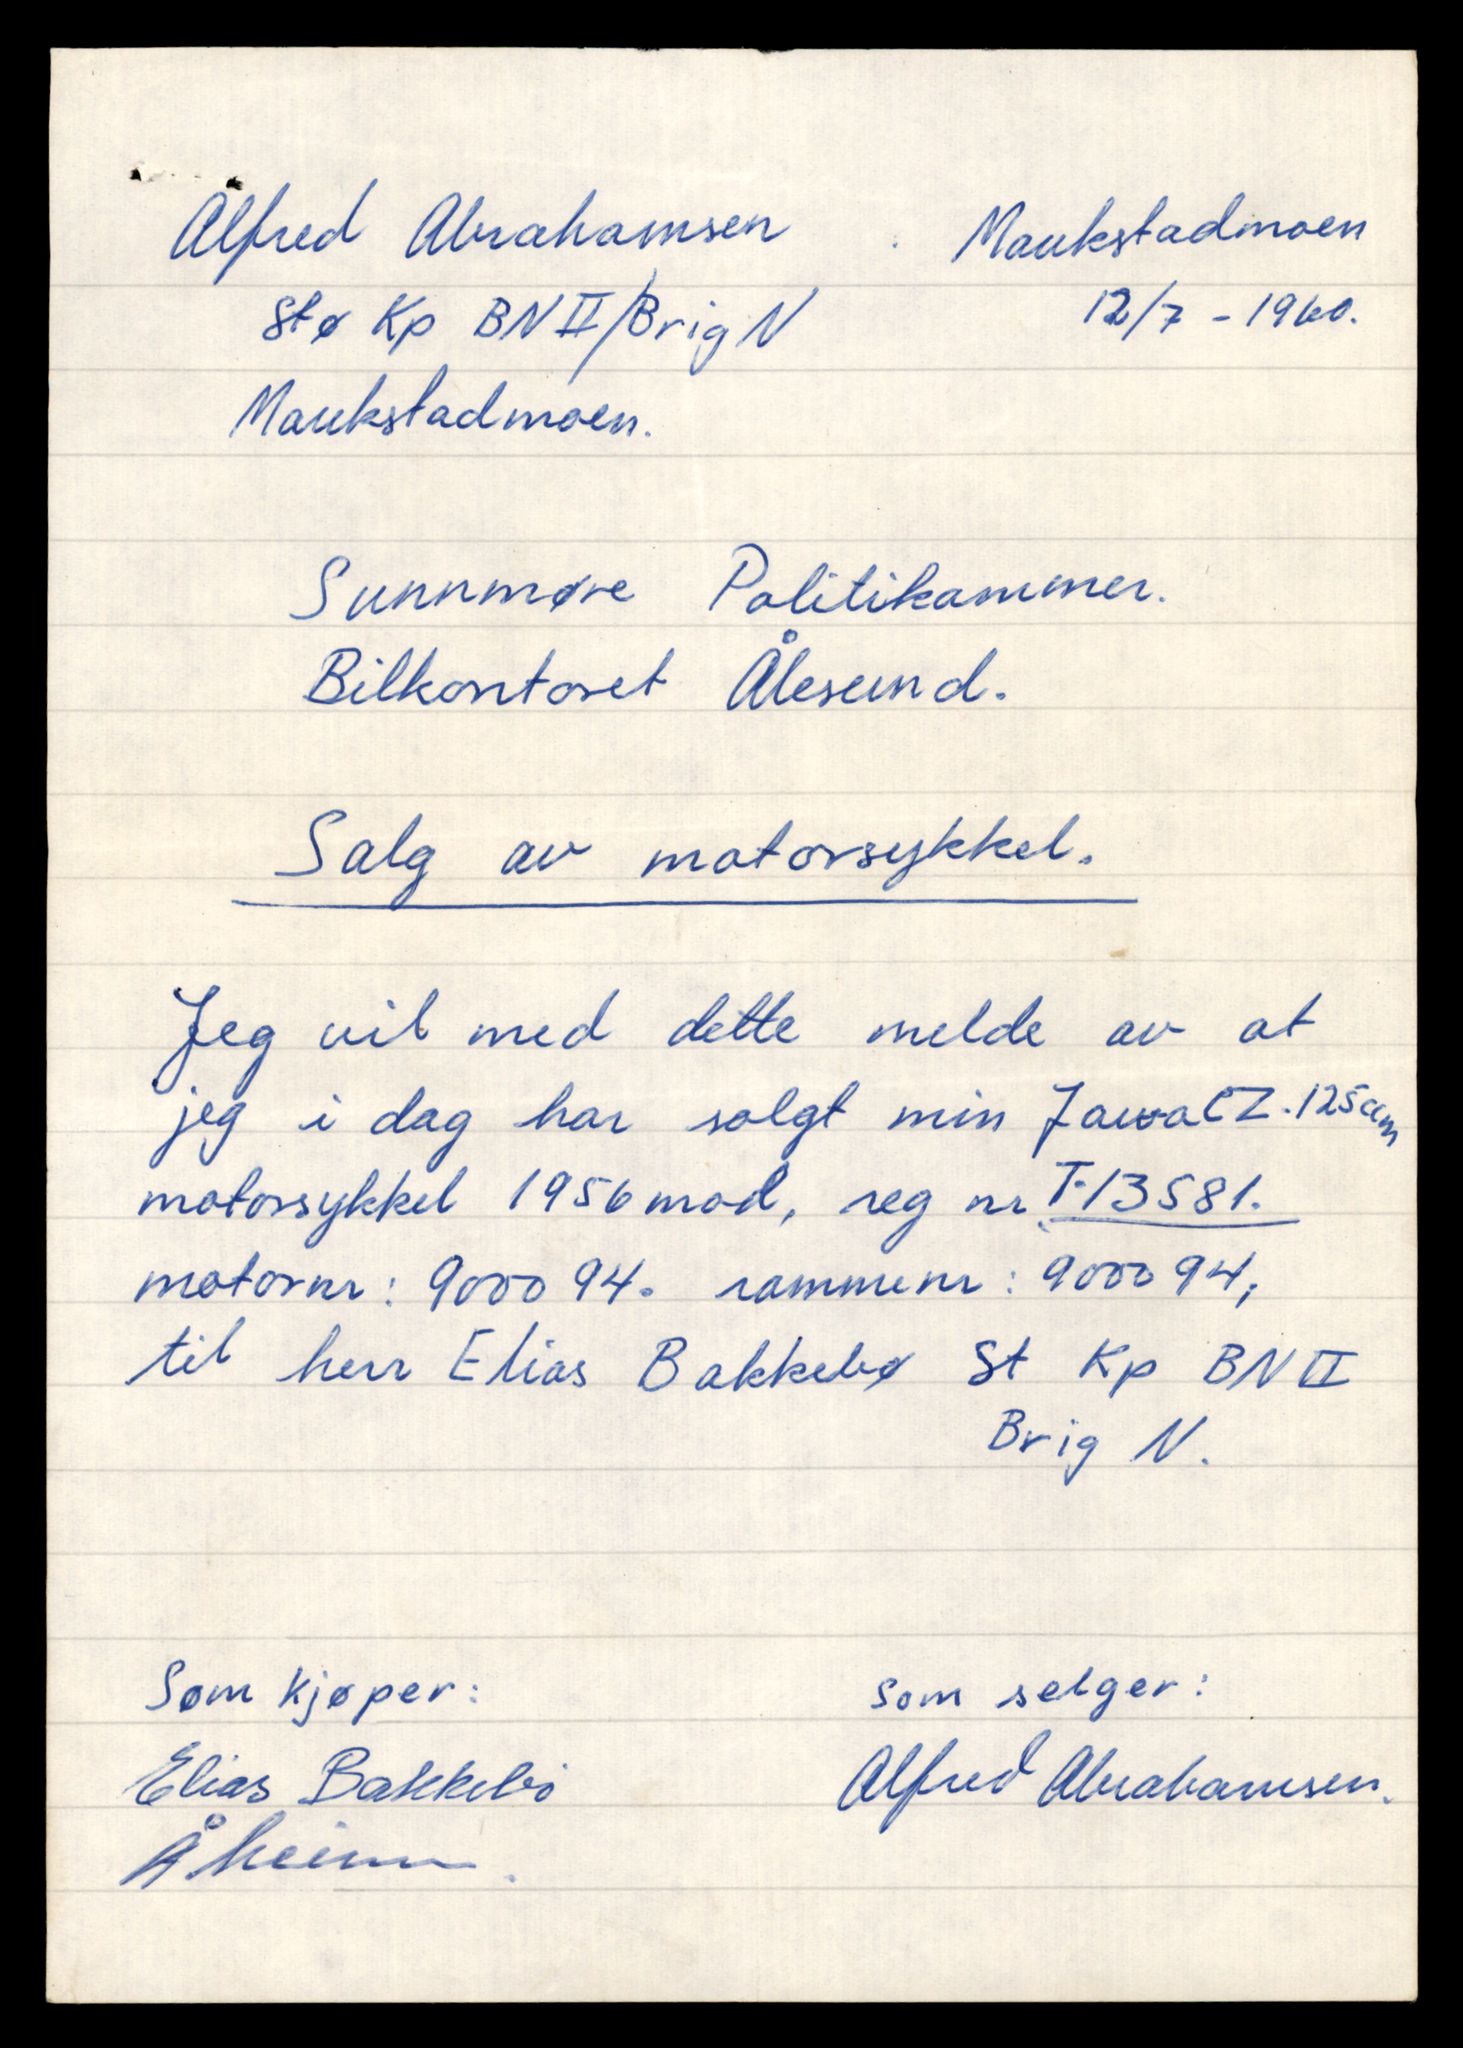 Alfred Abrahamsen Maukstadmoen
Stø Kp BN II/Brig N 12/7 - 1960.
Maukstadmoen.
Sunnmøre Politikammer.
Bilkontoret Ålesund.
Salg av motorsykkel.
Jeg vil med dette melde av at
jeg i dag har solgt min Jawa CZ. 125 ccm
motorsykkel 1956 mod, reg nr T-13581.
motornr: 900094. rammenr: 900094,
til herr Elias Bakkebø St Kp BN II
Brig N.
Som kjøper: som selger:
Elias Bakkebø Alfred Abrahamsen.
Åheim.